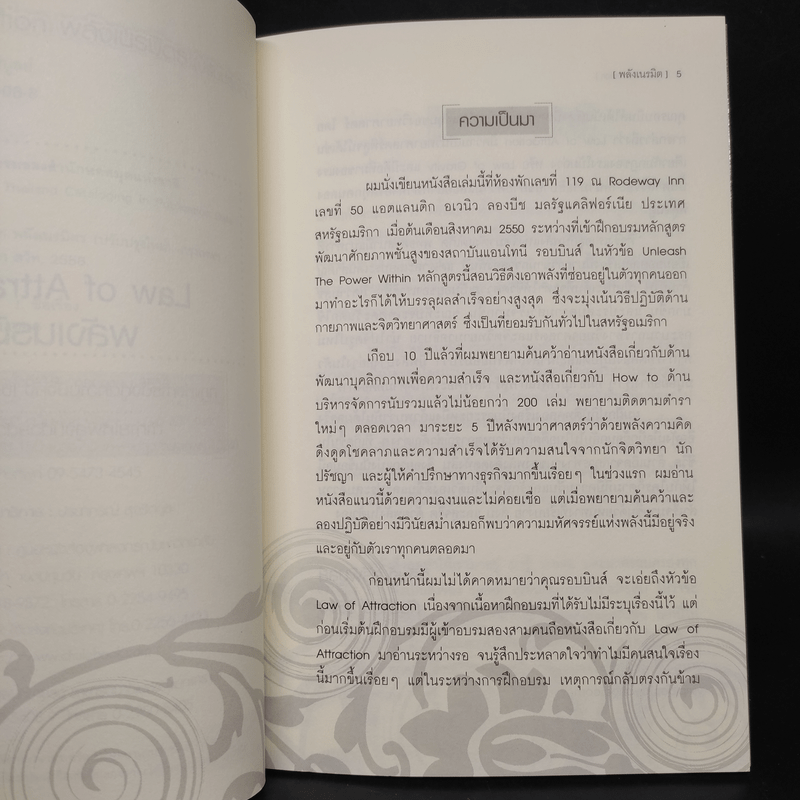 Law of Attra
พลังเนรมิ
[ พลังเนรมิต ] 5
ความเป็นมา
ผมนั่งเขียนหนังสือเล่มนี้ที่ห้องพักเลขที่ 119 ณ Rodeway Inn
เลขที่ 50 แอตแลนติก อเวนิว ลองบีช มลรัฐแคลิฟอร์เนีย ประเทศ
สหรัฐอเมริกา เมื่อต้นเดือนสิงหาคม 2550 ระหว่างที่เข้าฝึกอบรมหลักสูตร
พัฒนาศักยภาพขั้นสูงของสถาบันแอนโทนี รอบบินส์ ในหัวข้อ Unleash
The Power Within หลักสูตรนี้สอนวิธีดึงเอาพลังที่ซ่อนอยู่ในตัวทุกคนออก
มาทำอะไรก็ได้ให้บรรลุผลสำเร็จอย่างสูงสุด ซึ่งจะมุ่งเน้นวิธีปฏิบัติด้าน
กายภาพและจิตวิทยาศาสตร์ ซึ่งเป็นที่ยอมรับกันทั่วไปในสหรัฐอเมริกา
เกือบ 10 ปีแล้วที่ผมพยายามค้นคว้าอ่านหนังสือเกี่ยวกับด้าน
พัฒนาบุคลิกภาพเพื่อความสำเร็จ และหนังสือเกี่ยวกับ How to ด้าน
บริหารจัดการนับรวมแล้วไม่น้อยกว่า 200 เล่ม พยายามติดตามตำรา
ใหม่ๆ ตลอดเวลา มาระยะ 5 ปีหลังพบว่าศาสตร์ว่าด้วยพลังความคิด
ดึงดูดโชคลาภและความสำเร็จได้รับความสนใจจากนักจิตวิทยา นัก
ปรัชญา และผู้ให้คำปรึกษาทางธุรกิจมากขึ้นเรื่อยๆ ในช่วงแรก ผมอ่าน
หนังสือแนวนี้ด้วยความฉงนและไม่ค่อยเชื่อ แต่เมื่อพยายามค้นคว้าและ
ลองปฏิบัติอย่างมีวินัยสม่ำเสมอก็พบว่าความมหัศจรรย์แห่งพลังนี้มีอยู่จริง
และอยู่กับตัวเราทุกคนตลอดมา
ก่อนหน้านี้ผมไม่ได้คาดหมายว่าคุณรอบบินส์ จะเอ่ยถึงหัวข้อ
Law of Attraction เนื่องจากเนื้อหาฝึกอบรมที่ได้รับไม่มีระบุเรื่องนี้ไว้ แต่
ก่อนเริ่มต้นฝึกอบรมมีผู้เข้าอบรมสองสามคนถือหนังสือเกี่ยวกับ Law of
Attraction มาอ่านระหว่างรอ จนรู้สึกประหลาดใจว่าทำไมมีคนสนใจเรื่อง
นี้มากขึ้นเรื่อยๆ แต่ในระหว่างการฝึกอบรม เหตุการณ์กลับตรงกันข้าม